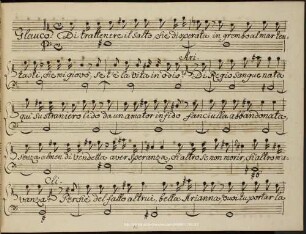 Glauco Di trattenere il salto che disperata in grembo al mar ten
tasti, che mi giovò, se t'è la vita in odio? Ari: Di Regio sangue nata
qui su straniero lido da un amator infido fanciulla abbandonata,
senza almen di vendetta aver speranza, ch'altro se non morir, ch'altro m'a
vanza? Cli: Perchè del fallo altrui, bella Arianna, vuoi tu portar la